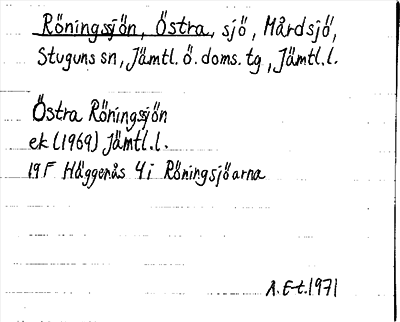 Röningssjön, Östra, sjö, Mårdsjö,
Stuguns sn, Jämtl. ö. doms. tg, Jämtl. l.
Östra Röningssjön
ek (1969) Jämtl. l.
19F Häggenås 4i Röningsjöarna
A. E-t. 1971